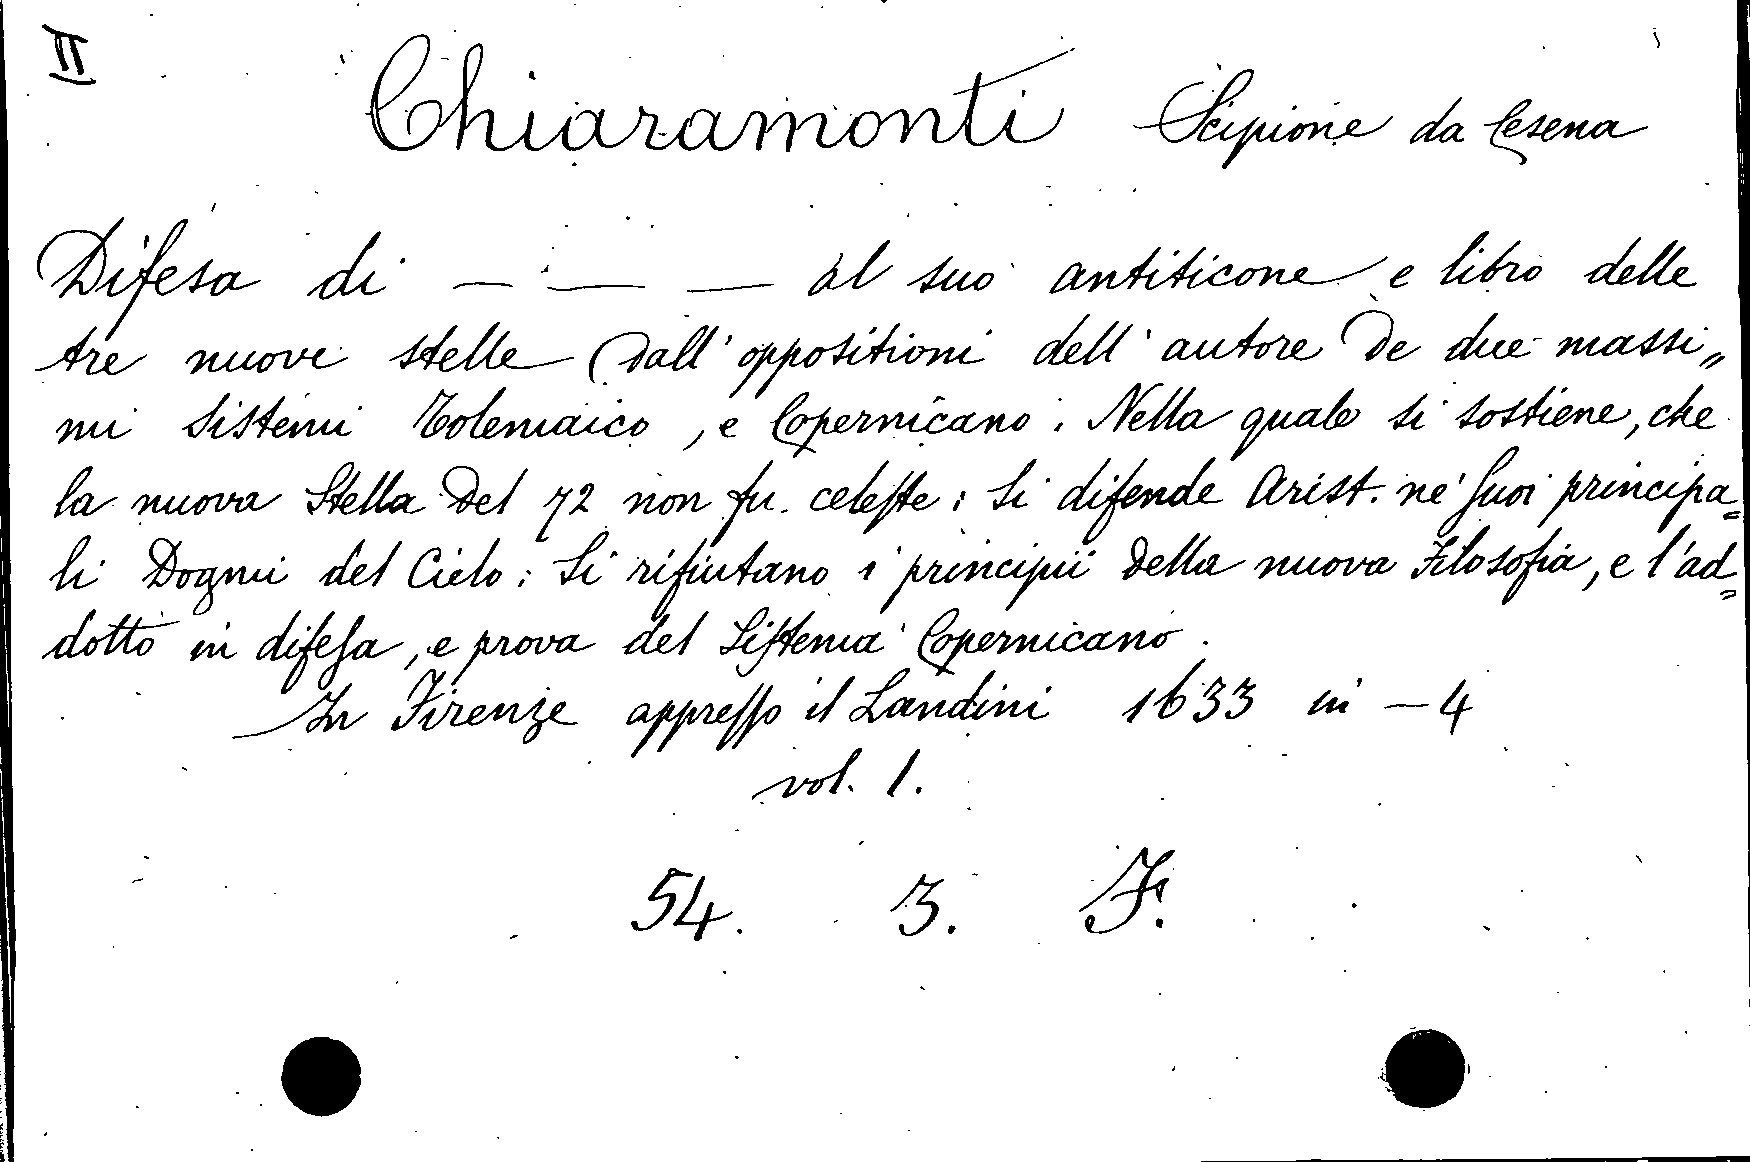 II
Chiaramonti Scipione da Cesena
Difesa di — — — al suo antiticone e libro delle
tre nuove stelle dall' oppositioni dell' autore De due massi„
mi Sistemi Tolemaico, e Copernicano. Nella quale si sostiene, che
la nuova Stella del 72 non fu celeſte: Si difende Arist. ne' ſuoi principa=
li Dogmi del Cielo: Si rifiutano i principii della nuova Filosofia, e l'ad=
dotto in difeſa, e prova del Siſtema Copernicano.
In Firenze appreſſo il Landini 1633 in -4
vol. 1.
54. 3. F.